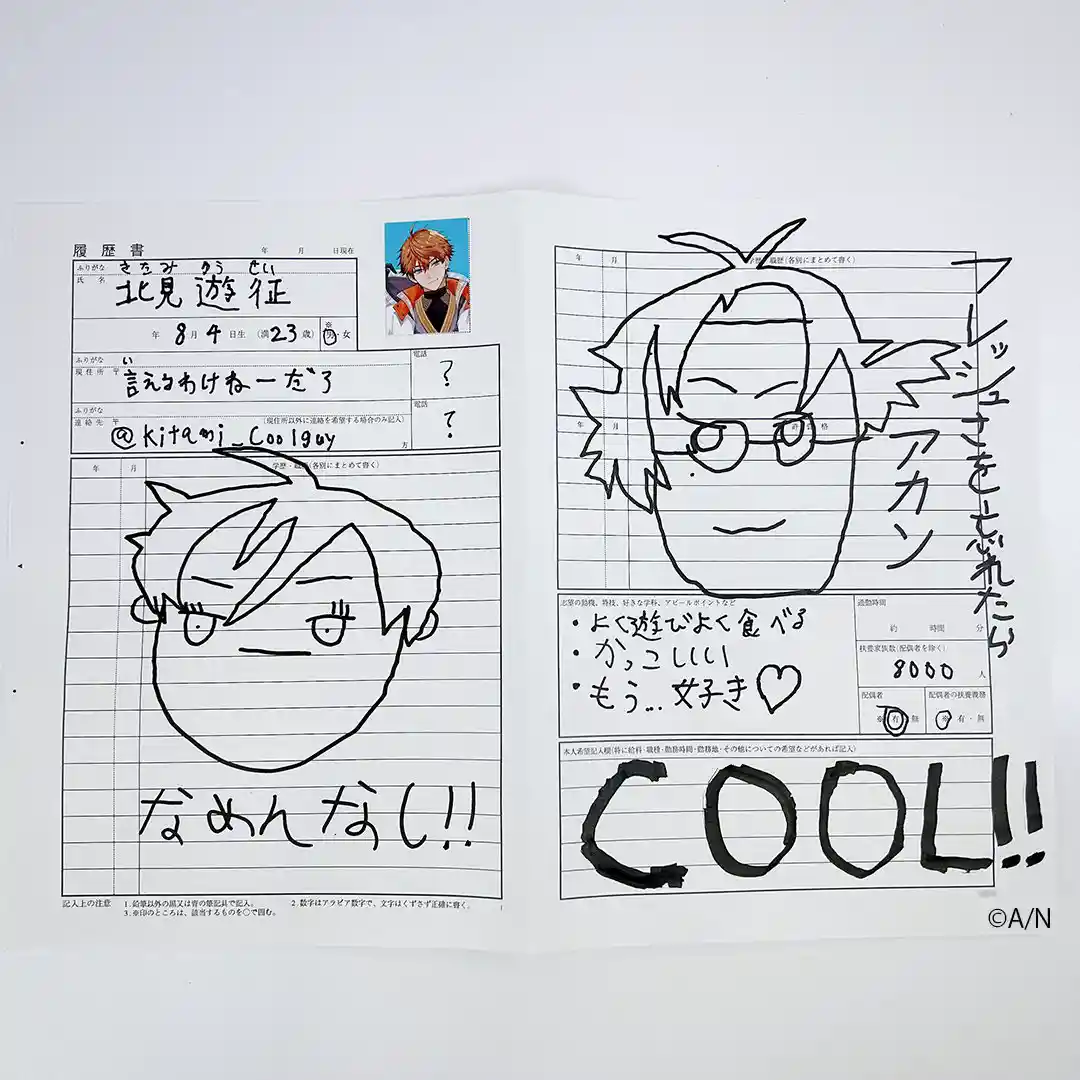 履歴書
年 月 日現在
ふりがな きたみ ゆう せい
氏名 北見 遊征
年 8月 4日生 (満 23歳) ※男・女
ふりがな い
現住所 〒 言えるわけねーだろ
電話 ?
ふりがな
連絡先 〒 (現住所以外に連絡を希望する場合のみ記入)
@kitami_coolguy 方
電話 ?
年 月 学歴・職歴(各別にまとめて書く)
なめんなし!!
記入上の注意 1.鉛筆以外の黒又は青の筆記具で記入。 2.数字はアラビア数字で、文字はくずさず正確に書く。
3.※印のところは、該当するものを○で囲む。
年 月 学歴・職歴(各別にまとめて書く)
フレッシュさをわすれたら
アカン
年 月 免許・資格
志望の動機、特技、好きな学科、アピールポイントなど
・よく遊びよく食べる
・かっこしいい
・もう...女好き♡
通勤時間
約 時間 分
扶養家族数(配偶者を除く)
8000 人
配偶者
※ 有・無
配偶者の扶養義務
※ 有・無
本人希望記入欄(特に給料・職種・勤務時間・勤務地・その他についての希望などがあれば記入)
COOL!!
©A/N